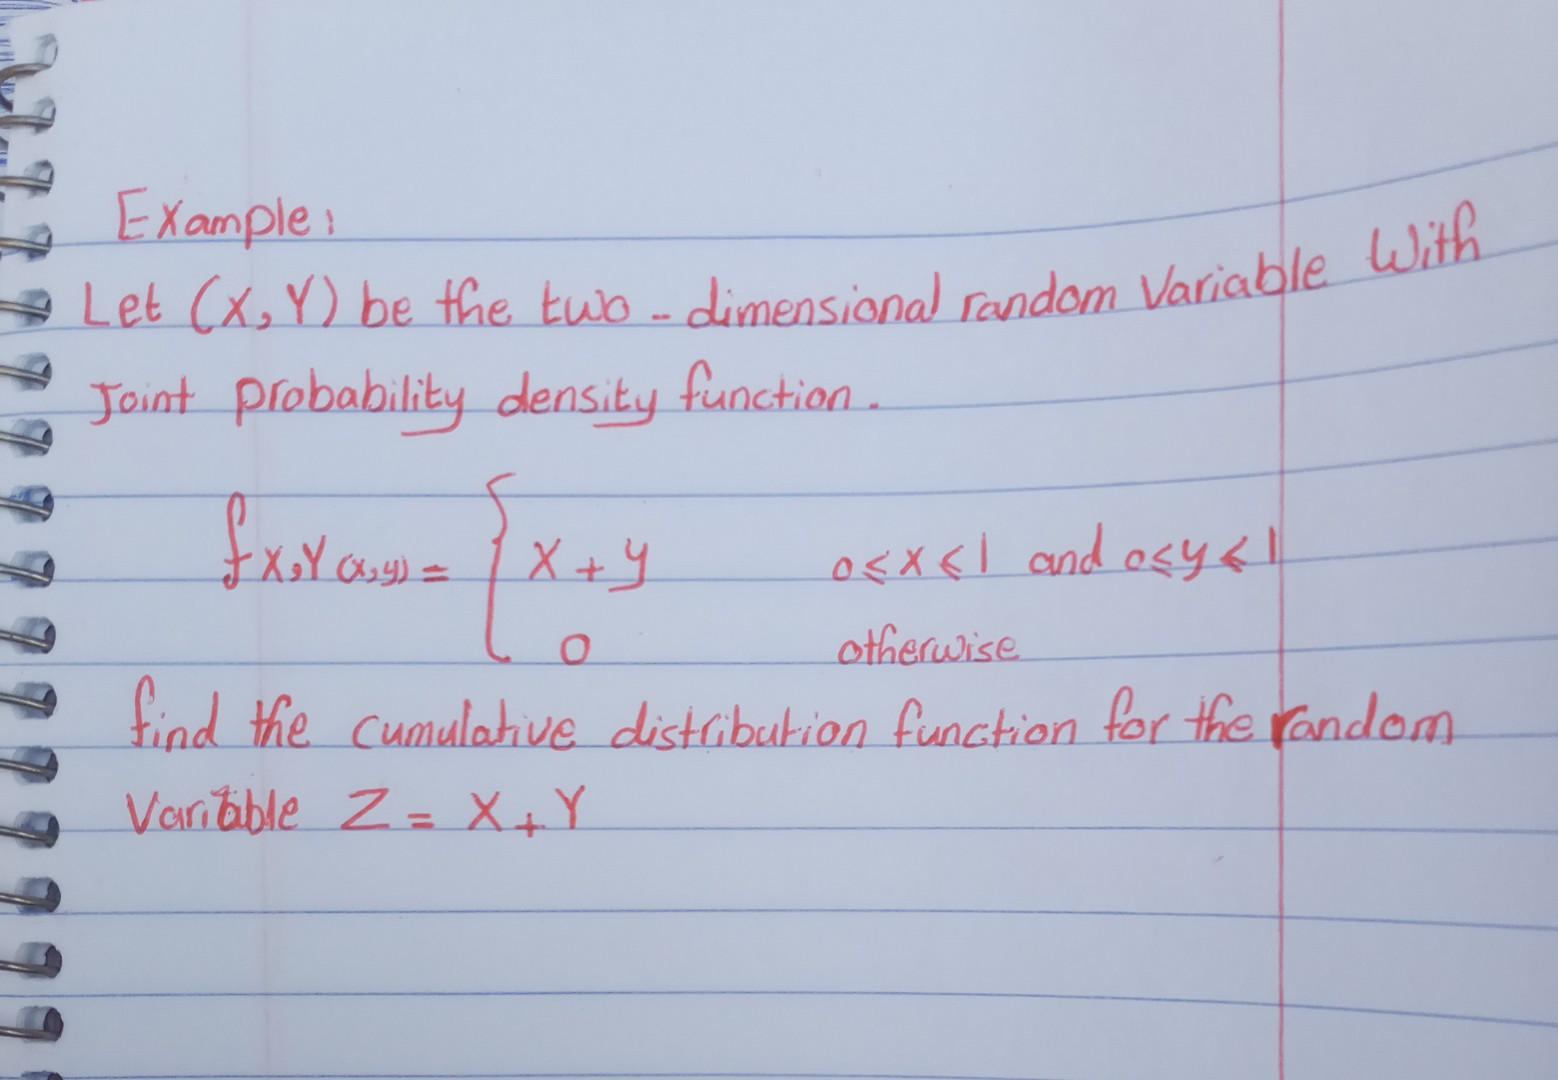 Example:
Let (X, Y) be the two - dimensional random Variable With
Joint probability density function.
f X,Y (x,y) = { X + y 0 ≤ x ≤ 1 and 0 ≤ y ≤ 1
0 otherwise
find the cumulative distribution function for the random
Variable Z = X + Y